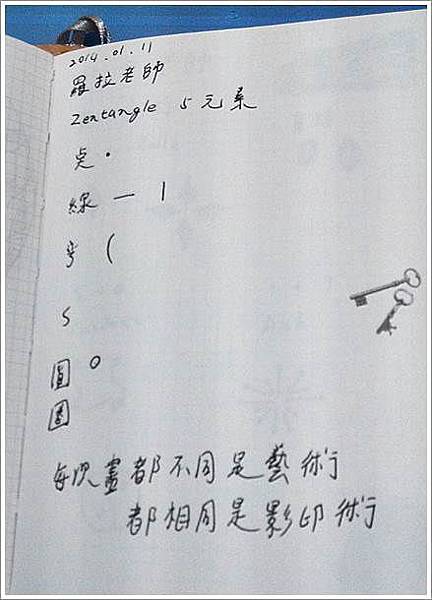 2014.01.11
羅拉老師
Zentangle 5元素
点 •
線 — |
弯 (
S
圓 o
圈
每次畫都不同是藝術
都相同是影印術